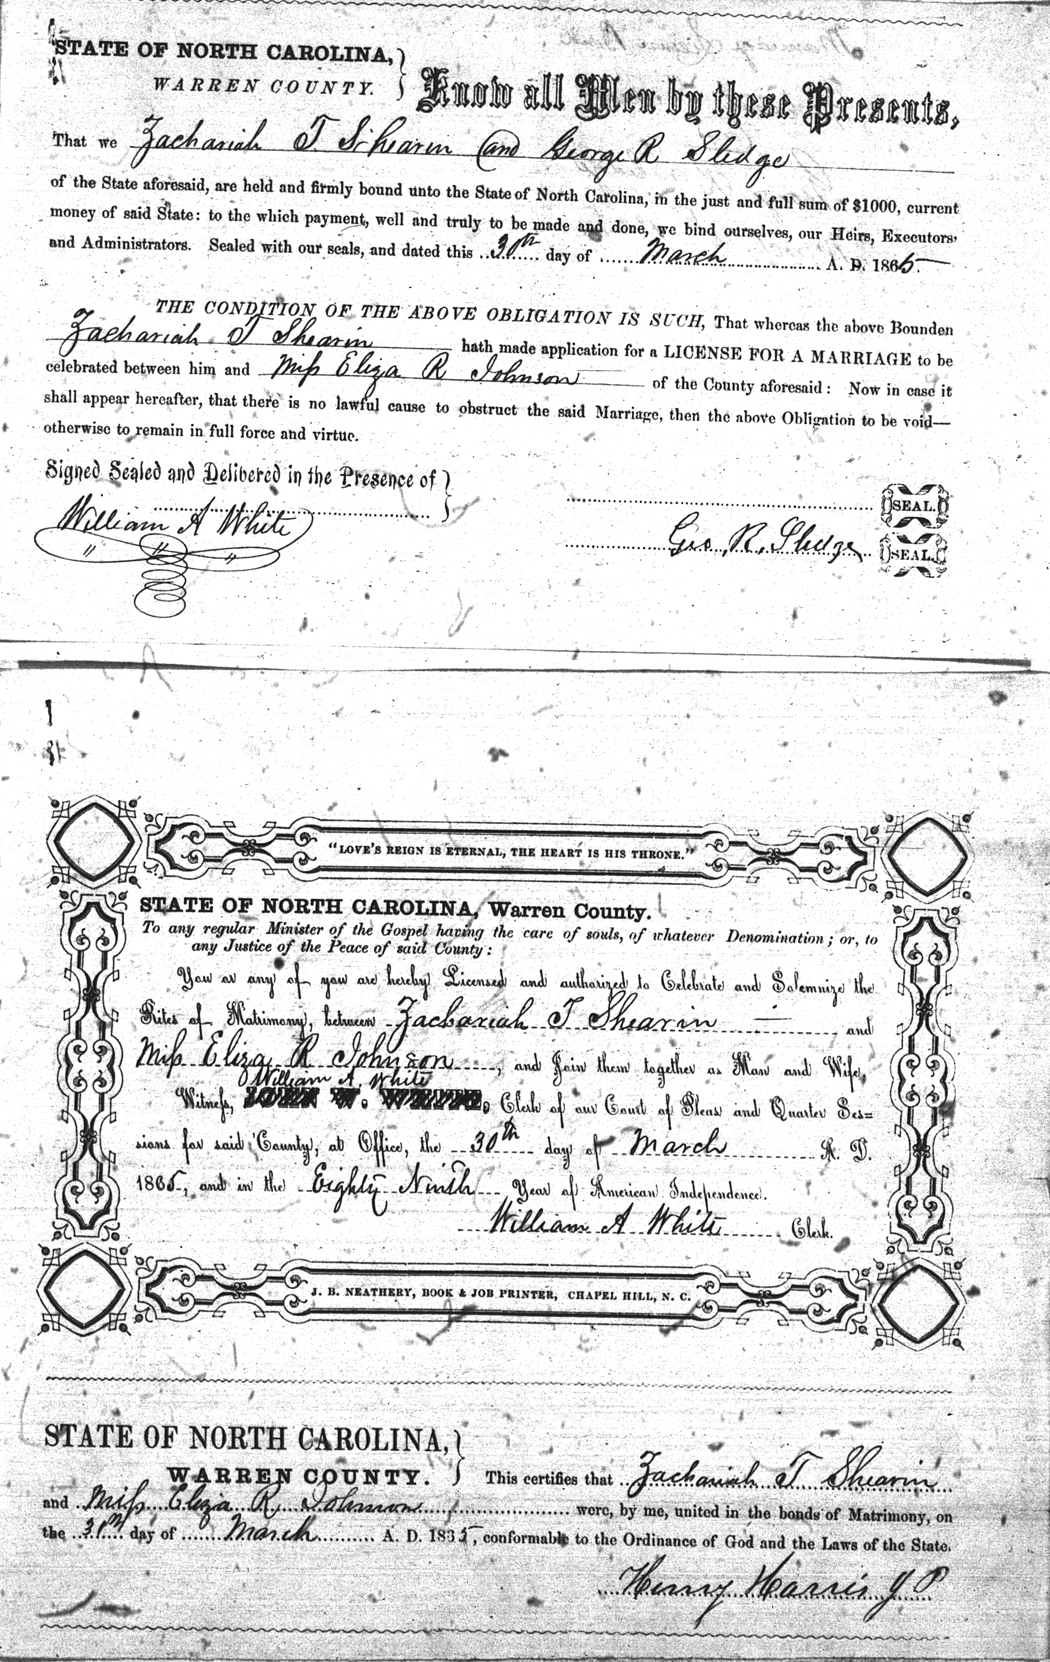 STATE OF NORTH CAROLINA,
WARREN COUNTY.
Know all Men by these Presents,
That we Zachariah T Shearin and George R Sledge
of the State aforesaid, are held and firmly bound unto the State of North Carolina, in the just and full sum of $1000, current
money of said State: to the which payment, well and truly to be made and done, we bind ourselves, our Heirs, Executors
and Administrators. Sealed with our seals, and dated this 30th day of March A. D. 1865
THE CONDITION OF THE ABOVE OBLIGATION IS SUCH, That whereas the above Bounden
Zachariah T Shearin hath made application for a LICENSE FOR A MARRIAGE to be
celebrated between him and Miss Eliza R Johnson of the County aforesaid: Now in case it
shall appear hereafter, that there is no lawful cause to obstruct the said Marriage, then the above Obligation to be void—
otherwise to remain in full force and virtue.
Signed Sealed and Delivered in the Presence of
William A White
SEAL.
Geo. R. Sledge SEAL.
"LOVE'S REIGN IS ETERNAL, THE HEART IS HIS THRONE."
STATE OF NORTH CAROLINA, Warren County.
To any regular Minister of the Gospel having the care of souls, of whatever Denomination; or, to
any Justice of the Peace of said County:
You or any of you are hereby Licensed and authorized to Celebrate and Solemnize the
Rites of Matrimony, between Zachariah T Shearin and
Miss Eliza R Johnson, and Join them together as Man and Wife,
William A. White
Witness, Clerk of our Court of Pleas and Quarter Ses=
sions for said County, at Office, the 30th day of March A. D.
1865, and in the Eighty Ninth Year of American Independence.
William A White Clerk.
J. B. NEATHERY, BOOK & JOB PRINTER, CHAPEL HILL, N. C.
STATE OF NORTH CAROLINA,
WARREN COUNTY.
This certifies that Zachariah T Shearin
and Miss Eliza R Johnson were, by me, united in the bonds of Matrimony, on
the 31st day of March A. D. 1865, conformable to the Ordinance of God and the Laws of the State.
Henry Harris J P